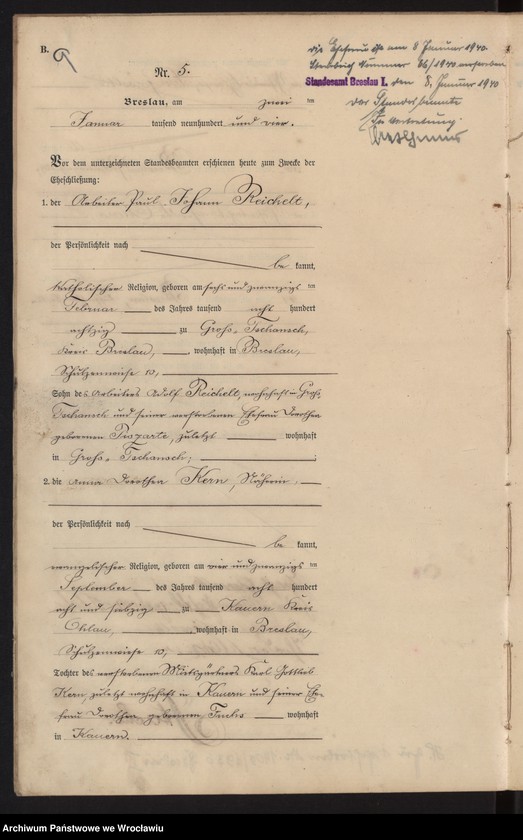 B.
die Ehefrau ist am 8. Januar 1940
Sterbebuch Nummer 86/1940 verstorben
Standesamt Breslau I, den 8. Januar 1940
Der Standesbeamte
In Vertretung
Nr. 5.
Breslau, am zwei ten
Januar tausend neunhundert und vier.
Vor dem unterzeichneten Standesbeamten erschienen heute zum Zwecke der
Eheschließung:
1. der Arbeiter Paul Johann Reichelt,
der Persönlichkeit nach
be kannt,
katholischer Religion, geboren am sechs und zwanzigs ten
Februar des Jahres tausend acht hundert
achtzig zu Groß-Tschansch,
Kreis Breslau, wohnhaft in Breslau,
Schützenwiese 10,
Sohn des Arbeiters Adolf Reichelt, wohnhaft in Groß-
Tschansch und seiner verstorbenen Ehefrau Dorothea
geborenen zuletzt wohnhaft
in Groß-Tschansch;
2. die Anna Dorothea Kern, Näherin,
der Persönlichkeit nach
be kannt,
evangelischer Religion, geboren am vier und zwanzigs ten
September des Jahres tausend acht hundert
acht und siebzig zu Kauern Kreis
Ohlau, wohnhaft in Breslau,
Schützenwiese 10,
Tochter des verstorbenen Karl Gottlieb
Kern, zuletzt wohnhaft in Kauern und seiner Ehe-
frau Dorothea geborenen Fuchs wohnhaft
in Kauern.
Archiwum Państwowe we Wrocławiu